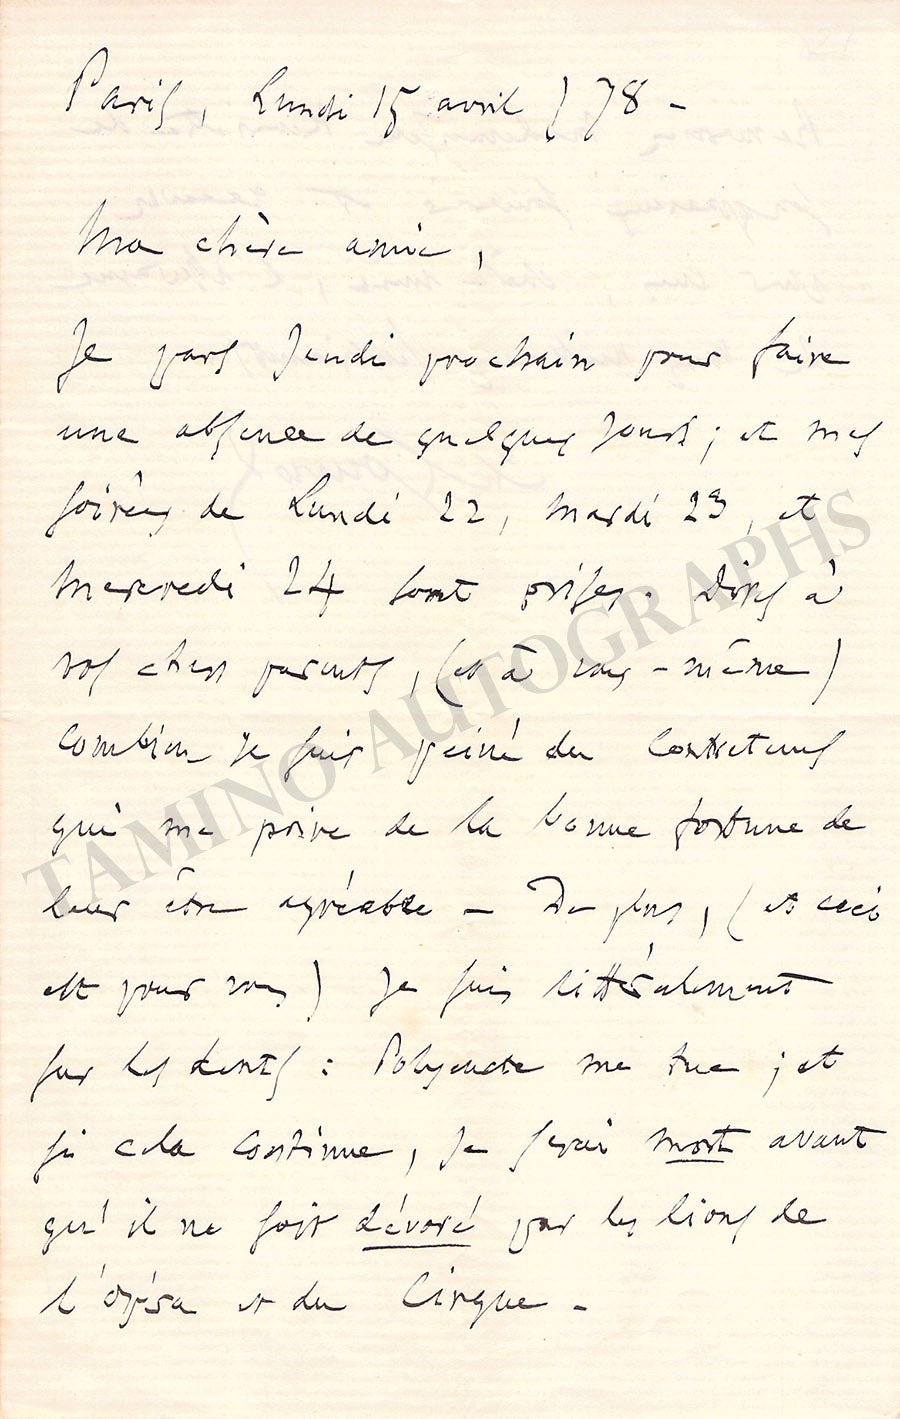 Paris, Lundi 15 avril / 78 -
Ma chère amie,
Je pars Jeudi prochain pour faire
une absence de quelques jours ; et mes
soirées de Lundi 22, mardi 23, et
mercredi 24 sont prises. Dites à
vos chers parents, (et à vous-même)
combien je suis peiné du contretems
qui me prive de la bonne fortune de
leur être agréable - De plus, (et ceci
est pour vous) je suis littéralement
sur les dents : Polyeucte me tue ; et
si cela continue, je serai mort avant
qu'il ne soit dévoré par les lions de
l'Opéra et du Cirque -
TAMINO AUTOGRAPHS